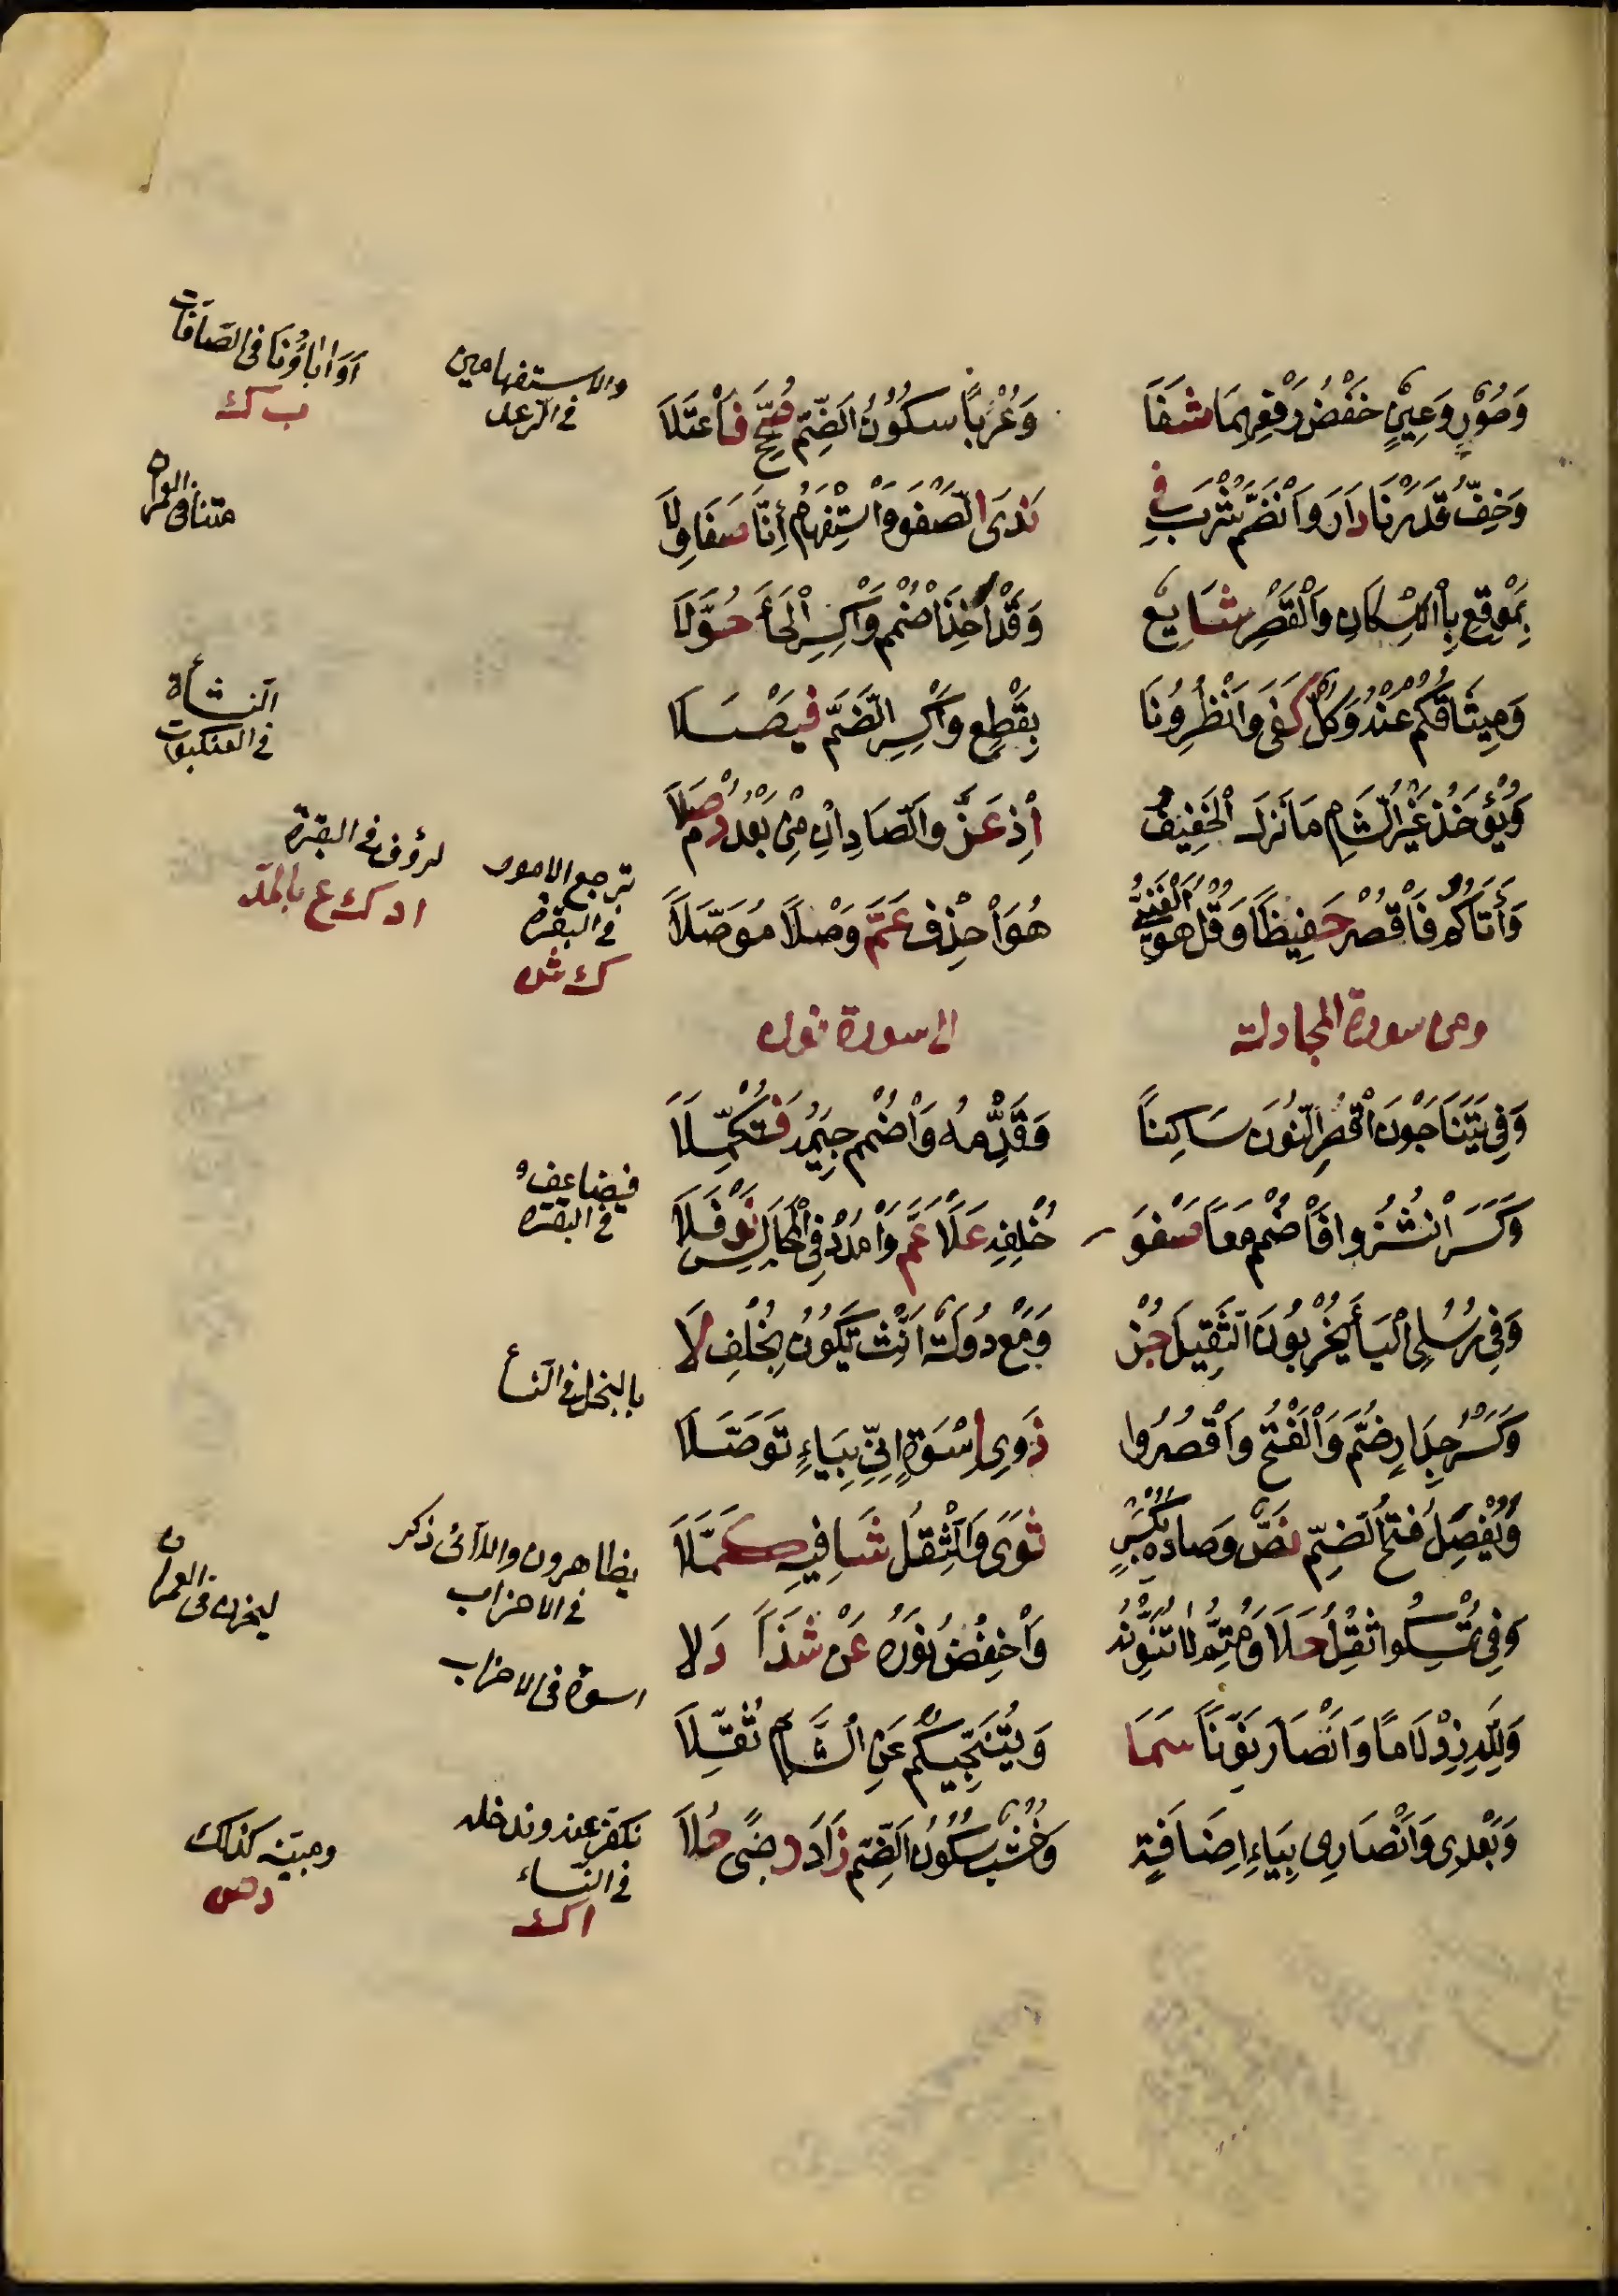 وَحُورٌ وَعِينٌ خَفْضُ رَفْعِهِمَا شَفَا وَعُرْبًا سكُونُ الضَّمِّ صُحِّحَ فَاعْتَلَا
وَخِفُّ قَدَرْنَا دَارَ وَانْضَمَّ شُرْبَ فِي نَدَى الصَّفْوِ وَاسْتِفْهَامُ أَنَّا صَفَا وِلَا
بِمَوْقِعِ بِالْإِسْكَانِ وَالْقَصْرِ شَايِعٌ وَقَدْ أَخَذَ اضْمُمْ وَاكْسِرِ الْخَاءَ حُوَّلَا
وَمِيثَاقُكُمْ عَنْهُ وَكُلٌّ كَفَى وَأَنْظِرُونَا بِقَطْعٍ وَاكْسِرِ الضَّمَّ فَيْصَلَا
وَيُؤْخَذُ غَيْرُ الشَّامِ مَا نَزَلَ الْخَفِيفُ إِذْ عَزَّ وَالصَّادَانِ مِنْ بَعْدُ دُمْ صِلَا
وَأَتَاكُمُ فَاقْصُرْ حَفِيظًا وَقُلْ هُوَ الْغَنِيُّ هُوَ احْذِفْ عَمَّ وَصْلًا مُوَصَّلَا
ومن سورة المجادلة الى سورة نون
وَفِي يَتَنَاجَوْنَ اقْصُرِ النُّونَ سَاكِنًا وَقَدِّمْهُ وَاضْمُمْ جِيمَهُ فَتُكَمِّلَا
وَكَسْرَ انْشُزُوا فَاضْمُمْ مَعًا صَفْوَ خُلْفِهِ عَلَا عَمَّ وَامْدُدْ فِي الْمَجَالِسِ نَوْفَلَا
وَفِي رُسُلِي الْيَا يُخْرِبُونَ الثَّقِيلَ حُزْ وَمَعْ دُولَةً أَنِّثْ تَكُونُ بِخُلْفِ لَا
وَكَسْرُ جِدَارٍ ضُمَّ وَالْفَتْحَ وَاقْصُرُوا ذَوِي إِسْوَةٍ إِنِّي بِيَاءٍ تَوَصَّلَا
وَيُفْصَلُ فَتْحُ الضَّمِّ نَصٌّ وَصَادُهُ بِكَسْرٍ ثَوَى وَالثِّقْلُ شَافِيهِ كَمَّلَا
وَفِي تُمْسِكُوا ثِقْلٌ حَلَا وَمُتِمُّ لَا تُنَوِّنْهُ وَاخْفِضْ نُورَهُ عَنْ شَذًا دَلَا
وَلِلَّهِ زِدْ لَامًا وَأَنْصَارَ نَوِّنًا سَمَا وَتُنَجِّيكُمْ عَنِ الشَّامِ ثُقِّلَا
وَبَعْدِي وَأَنْصَارِي بِيَاءِ إِضَافَةٍ وَخُشْبٌ سكُونُ الضَّمِّ زَادَ رِضًى حَلَا
والاستفهامين
في الرعد
أوَ اٰباؤنا في الصافات
ب ك
متنا في ال عمران
النشأة
في العنكبوت
ترجع الامور
في البقرة
ك ش
لرؤف في البقرة
ا د ك ع بالمد
فيضاعفه
في البقرة
بالبخل في النسا
يظاهرون واللآئى ذكر
في الاحزاب
ليحزن في ال عمران
اسوة في الاحزاب
نكفر عنه وندخله
في النساء
ا ك
ومبينه كذلك
د ص